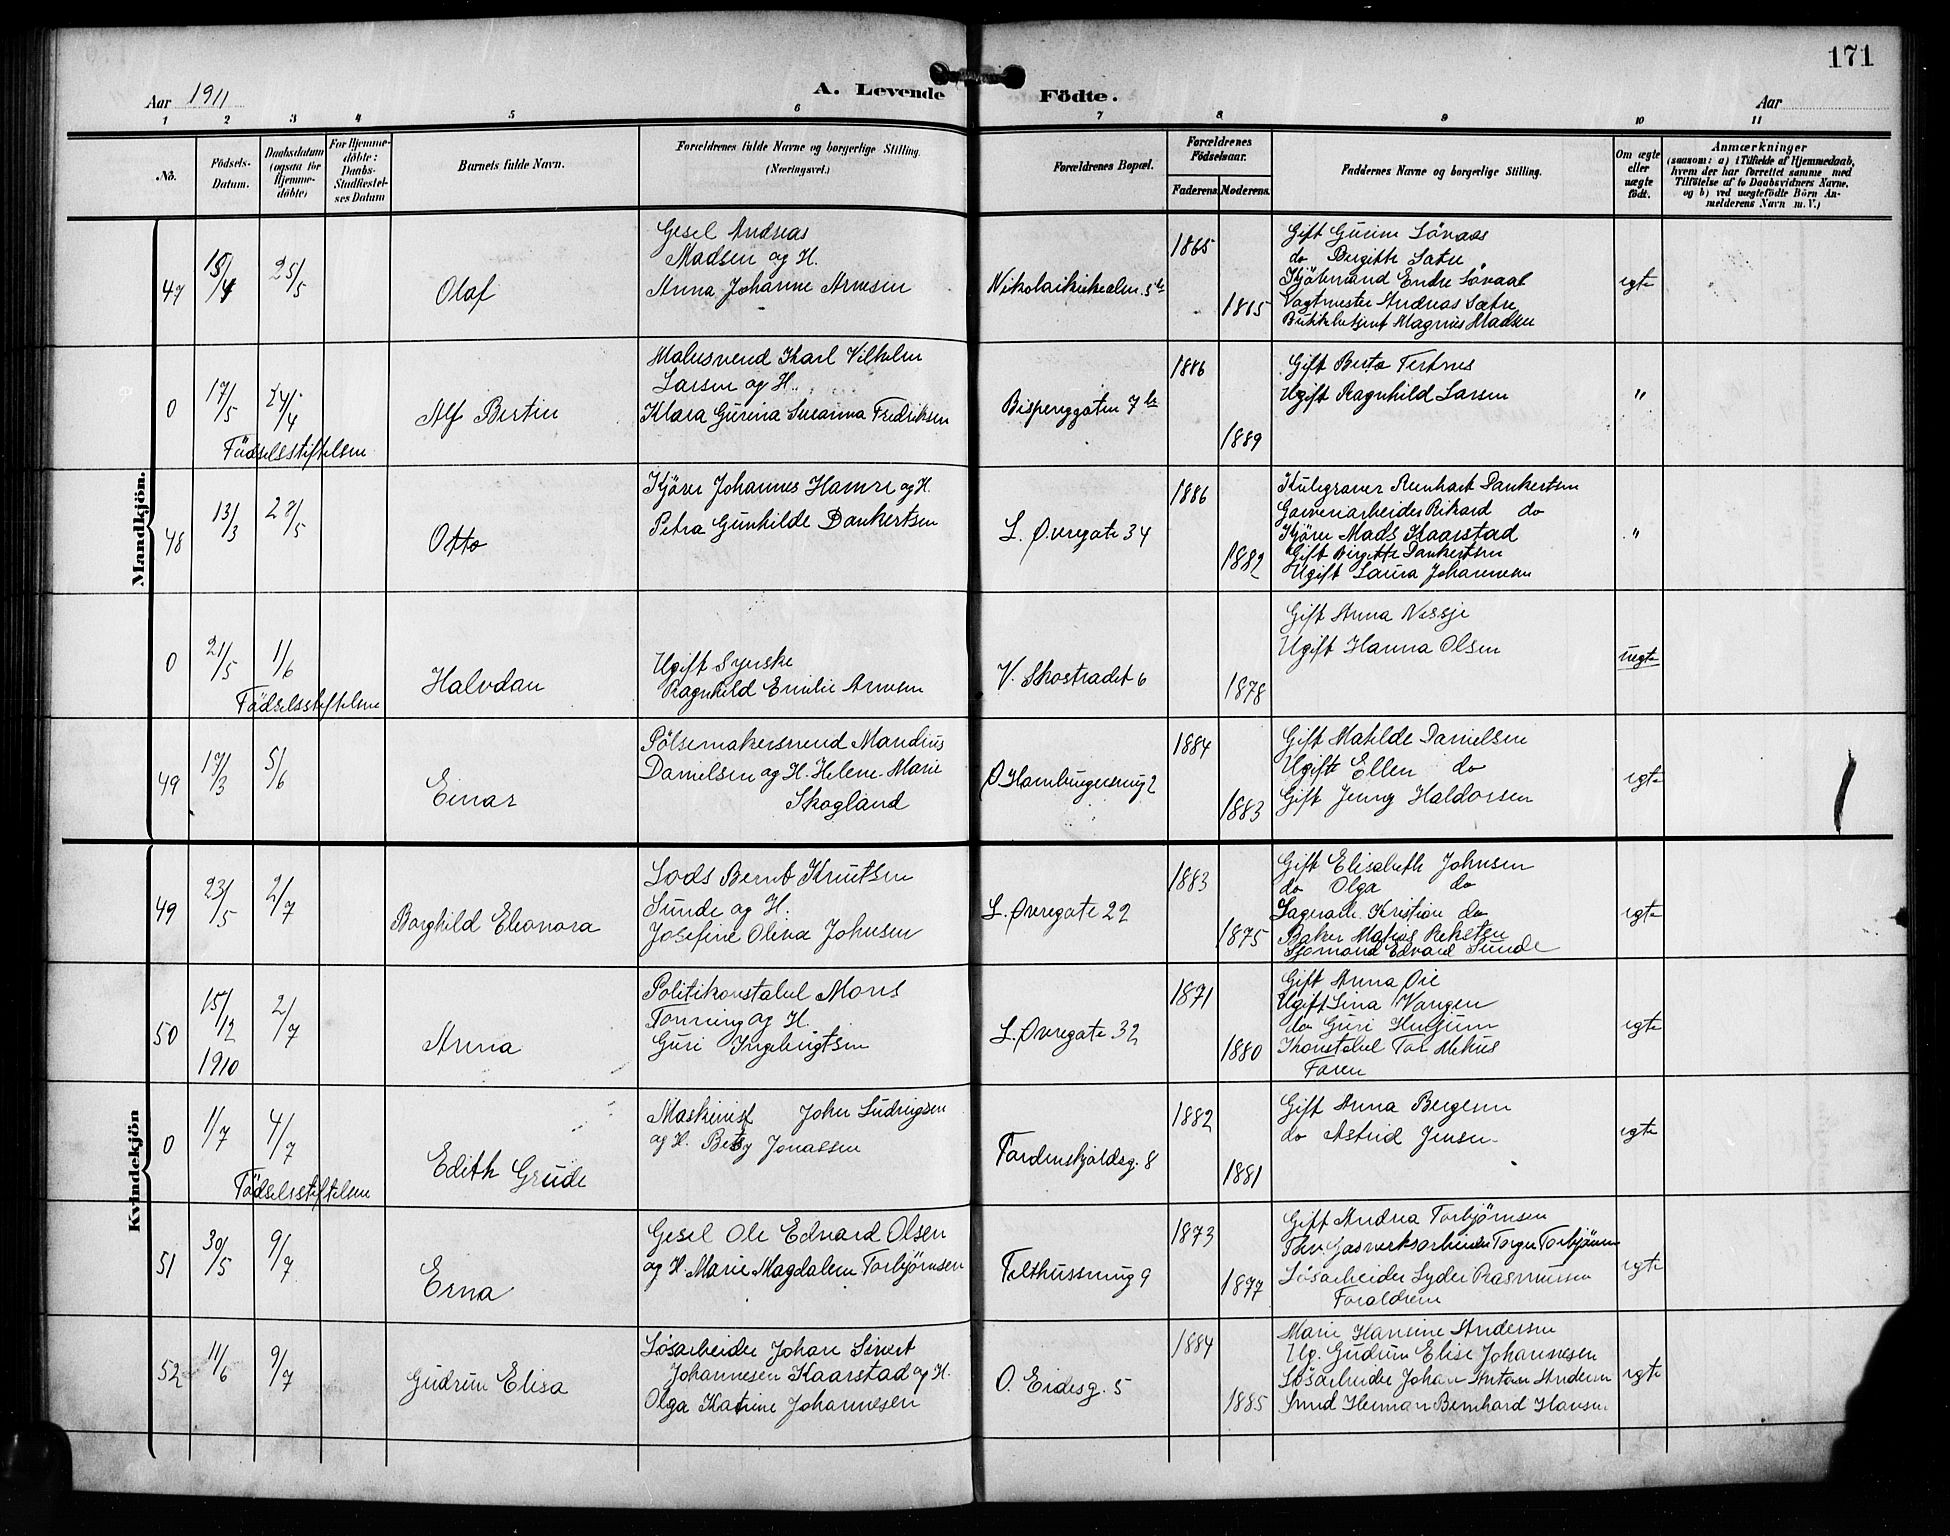 171
Aar 1911
A. Levende Födte.
Aar
1 2 3 4 5 6 7 8 9 10 11
No.
Födsels-Datum.
Daabsdatum (ogsaa for Hjemme-döbte)
For Hjemme-döbte: Daabs-Stadfæstel-ses Datum
Barnets fulde Navn.
Forældrenes fulde Navne og borgerlige Stilling. (Næringsvei.)
Forældrenes Bopæl.
Forældrenes Födselsaar.
Faderens. Moderens.
Faddernes Navne og borgerlige Stilling.
Om ægte eller uægte födt.
Anmærkninger
(saasom: a) i Tilfælde af Hjemmedaab,
hvem der har forrettet samme med
Tilföielse af to Daabsvidners Navne.
og b) ved uægtefödte Börn An-
melderens Navn m. V.)
Mandkjön.
47 18/4 25/5
Olaf
Gesel Andreas
Madsen og H.
Anna Johanne Arnesen
1865
1865
Gift Gurine Lövaas
do Birgitte Sætre
Endre Lövaas
Vagtmester Andreas Sætre
Magnus Madsen
egte
0 17/5 24/4
Födselsstiftelsen
Alf Bertin
Malersvend Karl Vilhelm
Larsen og H.
Klara Gurina Susanna Fredriksen
Bispenggaten 7 b
1886
1889
Gift Berta Tertnes
Ugift Ragnhild Larsen
"
48 13/3 28/5
Otto
Kjörer Johannes Hamre og H.
Petra Gunhilde Dankertsen
L. Øvregate 34
1886
1882
Kulegraver Reinhart Dankertsen
Garveriarbeider Rikard do
Kjörer Mads Kaarstad
Gift Birgitte Dankertsen
Ugift Laura Johannesen
"
0 21/5 1/6
Födselsstiftelsen
Halvdan
Ugift Syerske
Ragnhild Emilie Arnesen
V. Skostrædet 6
1878
Gift Anna Nessje
Ugift Hanna Olsen
uegte
49 17/3 5/6
Einar
Pölsemakersvend Mandius
Danielsen og H. Helene Marie
Skogland
Ø Hamburgersmug 2
1884
1883
Gift Matilde Danielsen
Ugift Ellen do
Gift Jenny Haldorsen
egte
Kvindekjön
49 23/5 2/7
Borghild Eleonora
Lods Bernt Knutsen
Sunde og H.
Josefine Olina Johnsen
L. Øvregate 22
1883
1875
Gift Elisabeth Johnsen
do Olga do
Lagerarb. Kristian do
Baker Matias Reksten
Sjömand Edvard Sunde
egte
50 15/12 1910 2/7
Anna
Politikonstabel Mons
Tonning og H.
Guri Ingebrigtsen
L. Øvregate 32
1871
1880
Gift Anna Øie
Ugift Lina Vangen
do Guri
Konstabel Tor Mehus
Faren
egte
0 1/7 4/7
Födselsstiftelsen
Edith Grude
Maskinist John Ludvigsen
og H. Betsy Jonassen
Tordenskjoldsg. 8
1882
1881
Gift Anna Bergesen
do Astrid Jensen
egte
51 30/5 9/7
Erna
Gesel Ole Edvard Olsen
og H. Marie Magdalene Torbjörnsen
Felthussmug 9
1873
1877
Gift Andrea Torbjörnsen
Gasverksarbeider Torger Torbjörnsen
Lösarbeider Lyder Rasmussen
Forældrene
egte
52 11/6 9/7
Gudrun Elisa
Lösarbeider Johan Sivert
Johannesen Kaarstad og H.
Olga Katrine Johannesen
O. Eidesg. 5
1884
1885
Marie Hansine Andersen
Ug. Gudrun Elise Johannesen
Lösarbeider Johan Anton Andersen
Smed Herman Bernhard Hansen
egte